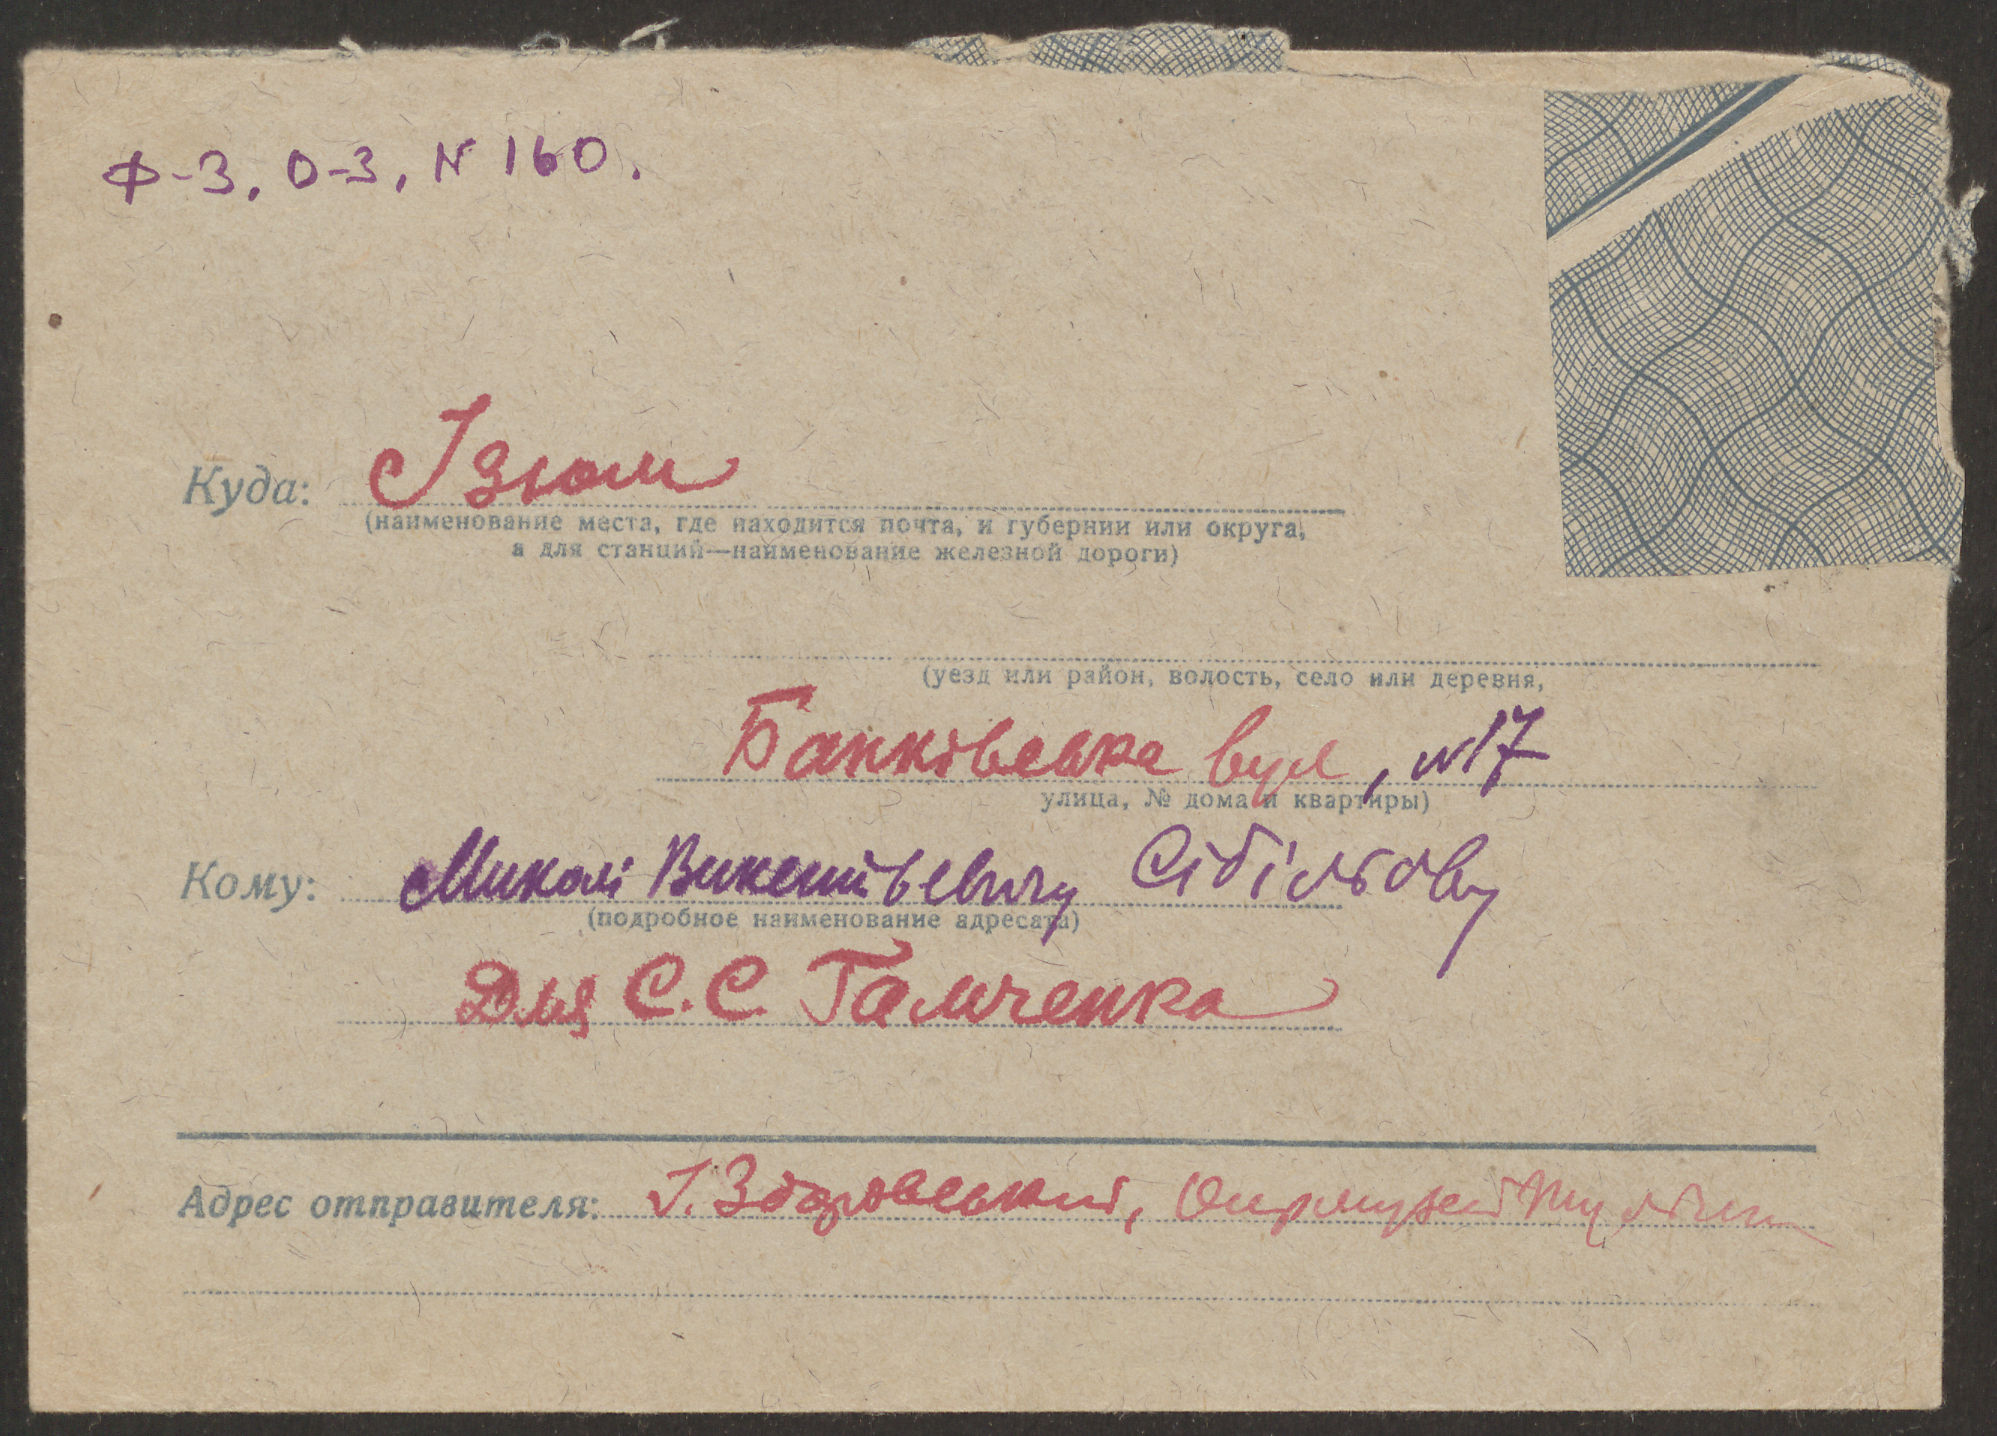 Ф-3, О-3, N 160.
Куда: Ізюм
(наименование места, где находится почта, и губернии или округа,
а для станций—наименование железной дороги)
(уезд или район, волость, село или деревня,
Банківська вул, N17
улица, № дома и квартиры)
Кому: Миколі Викентієвичу Сібільову
(подробное наименование адресата)
Для С.С. Гамченка
Адрес отправителя: І.